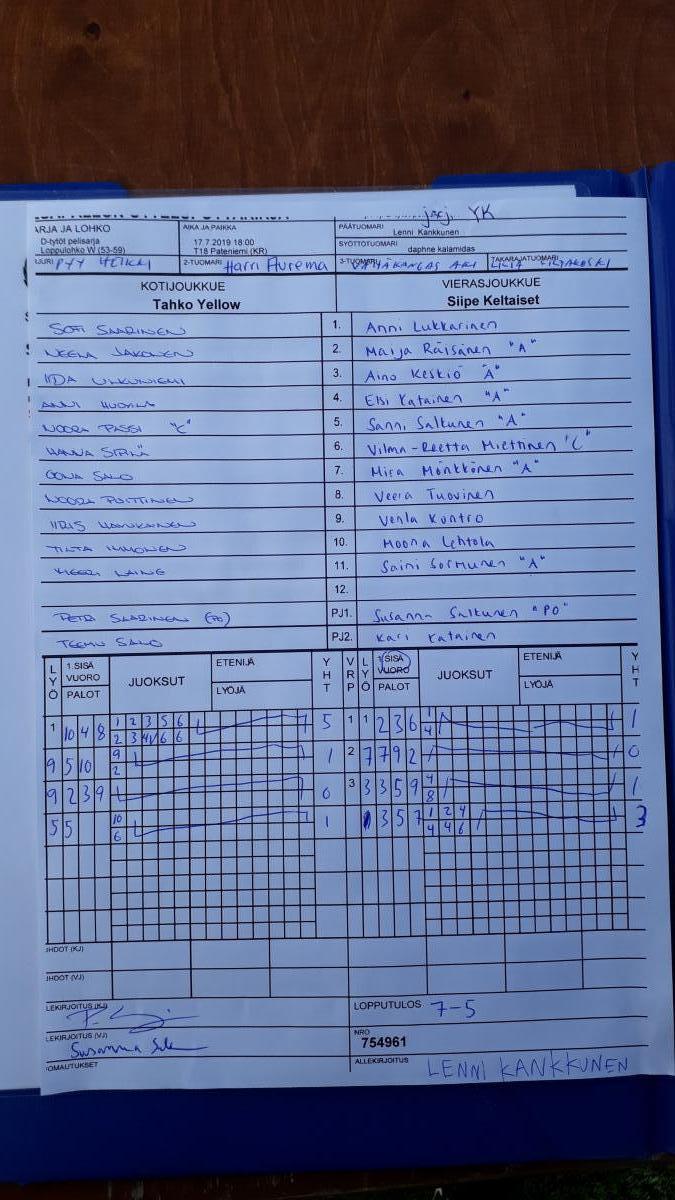 ARJA JA LOHKO
D-tytöt pelisarja
Loppulohko W (53-59)
AIKA JA PAIKKA
17.7.2019 18:00
T18 Pateniemi (KR)
järj. YK
PÄÄTUOMARI
Lenni Kankkunen
SYÖTTÖTUOMARI
daphne kalamidas
2-TUOMARI Harri Aurema
3-TUOMARI
TAKARAJATUOMARI
KOTIJOUKKUE
Tahko Yellow
VIERASJOUKKUE
Siipe Keltaiset
SOFI SAARINEN 1. Anni Lukkarinen
NEEA JAKONEN 2. Maija Räisänen "A"
IIDA 3. Aino Keskiö "A"
ANNI 4. Elsi Katainen "A"
NOORA PASSI "C" 5. Sanni Salkunen "A"
HANNA 6. Vilma-Reetta Miettinen "C"
OONA SALO 7. Mira Mönkkönen "A"
NOORA PUITTINEN 8. Veera Tuovinen
IIRIS 9. Venla Kontro
IMMONEN 10. Moona Lehtola
LAINE 11. Saini Sormunen "A"
12.
PETRI SAARINEN (PO) PJ1. Susanna Salkunen "PO"
TEEMU SALO PJ2. Kari Katainen
LYÖ 1.SISÄ VUORO PALOT JUOKSUT ETENIJÄ LYÖJÄ YHT VRP LYÖ 1.SISÄ VUORO PALOT JUOKSUT ETENIJÄ LYÖJÄ YHT
1 10 4 8 1 2 3 5 6 5 1 1 2 3 6 1 1
2 3 4 6 6 4
9 5 10 9 1 2 7 7 9 2 0
2
9 2 3 9 0 3 3 3 5 9 4 1
8
5 5 10 1 1 3 5 7 1 2 4 3
6 4 4 6
JHDOT (KJ)
JHDOT (VJ)
LEKIRJOITUS (KJ)
LEKIRJOITUS (VJ)
Susanna
OMAUTUKSET
LOPPUTULOS 7-5
NRO
754961
ALLEKIRJOITUS LENNI KANKKUNEN